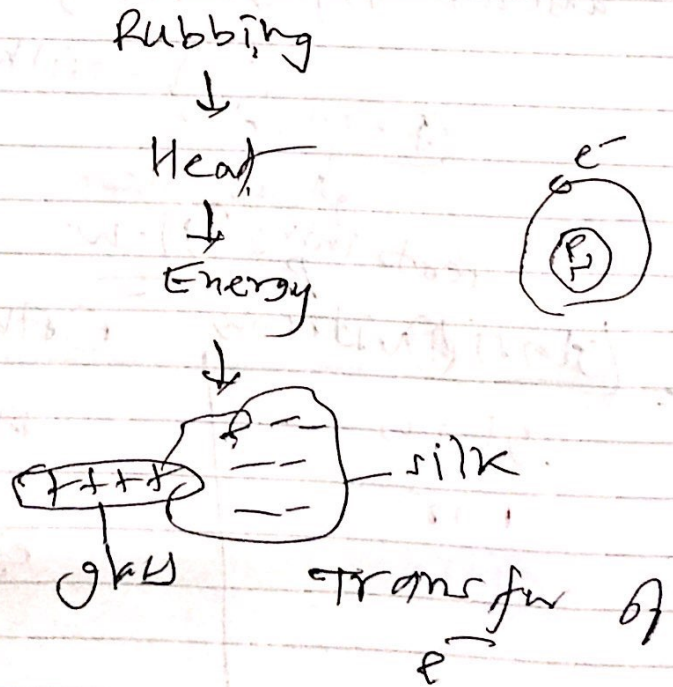 Rubbing
↓
Heat
↓
e⁻
Energy
↓
- - -
++++
silk
glass
Transfer of
e⁻